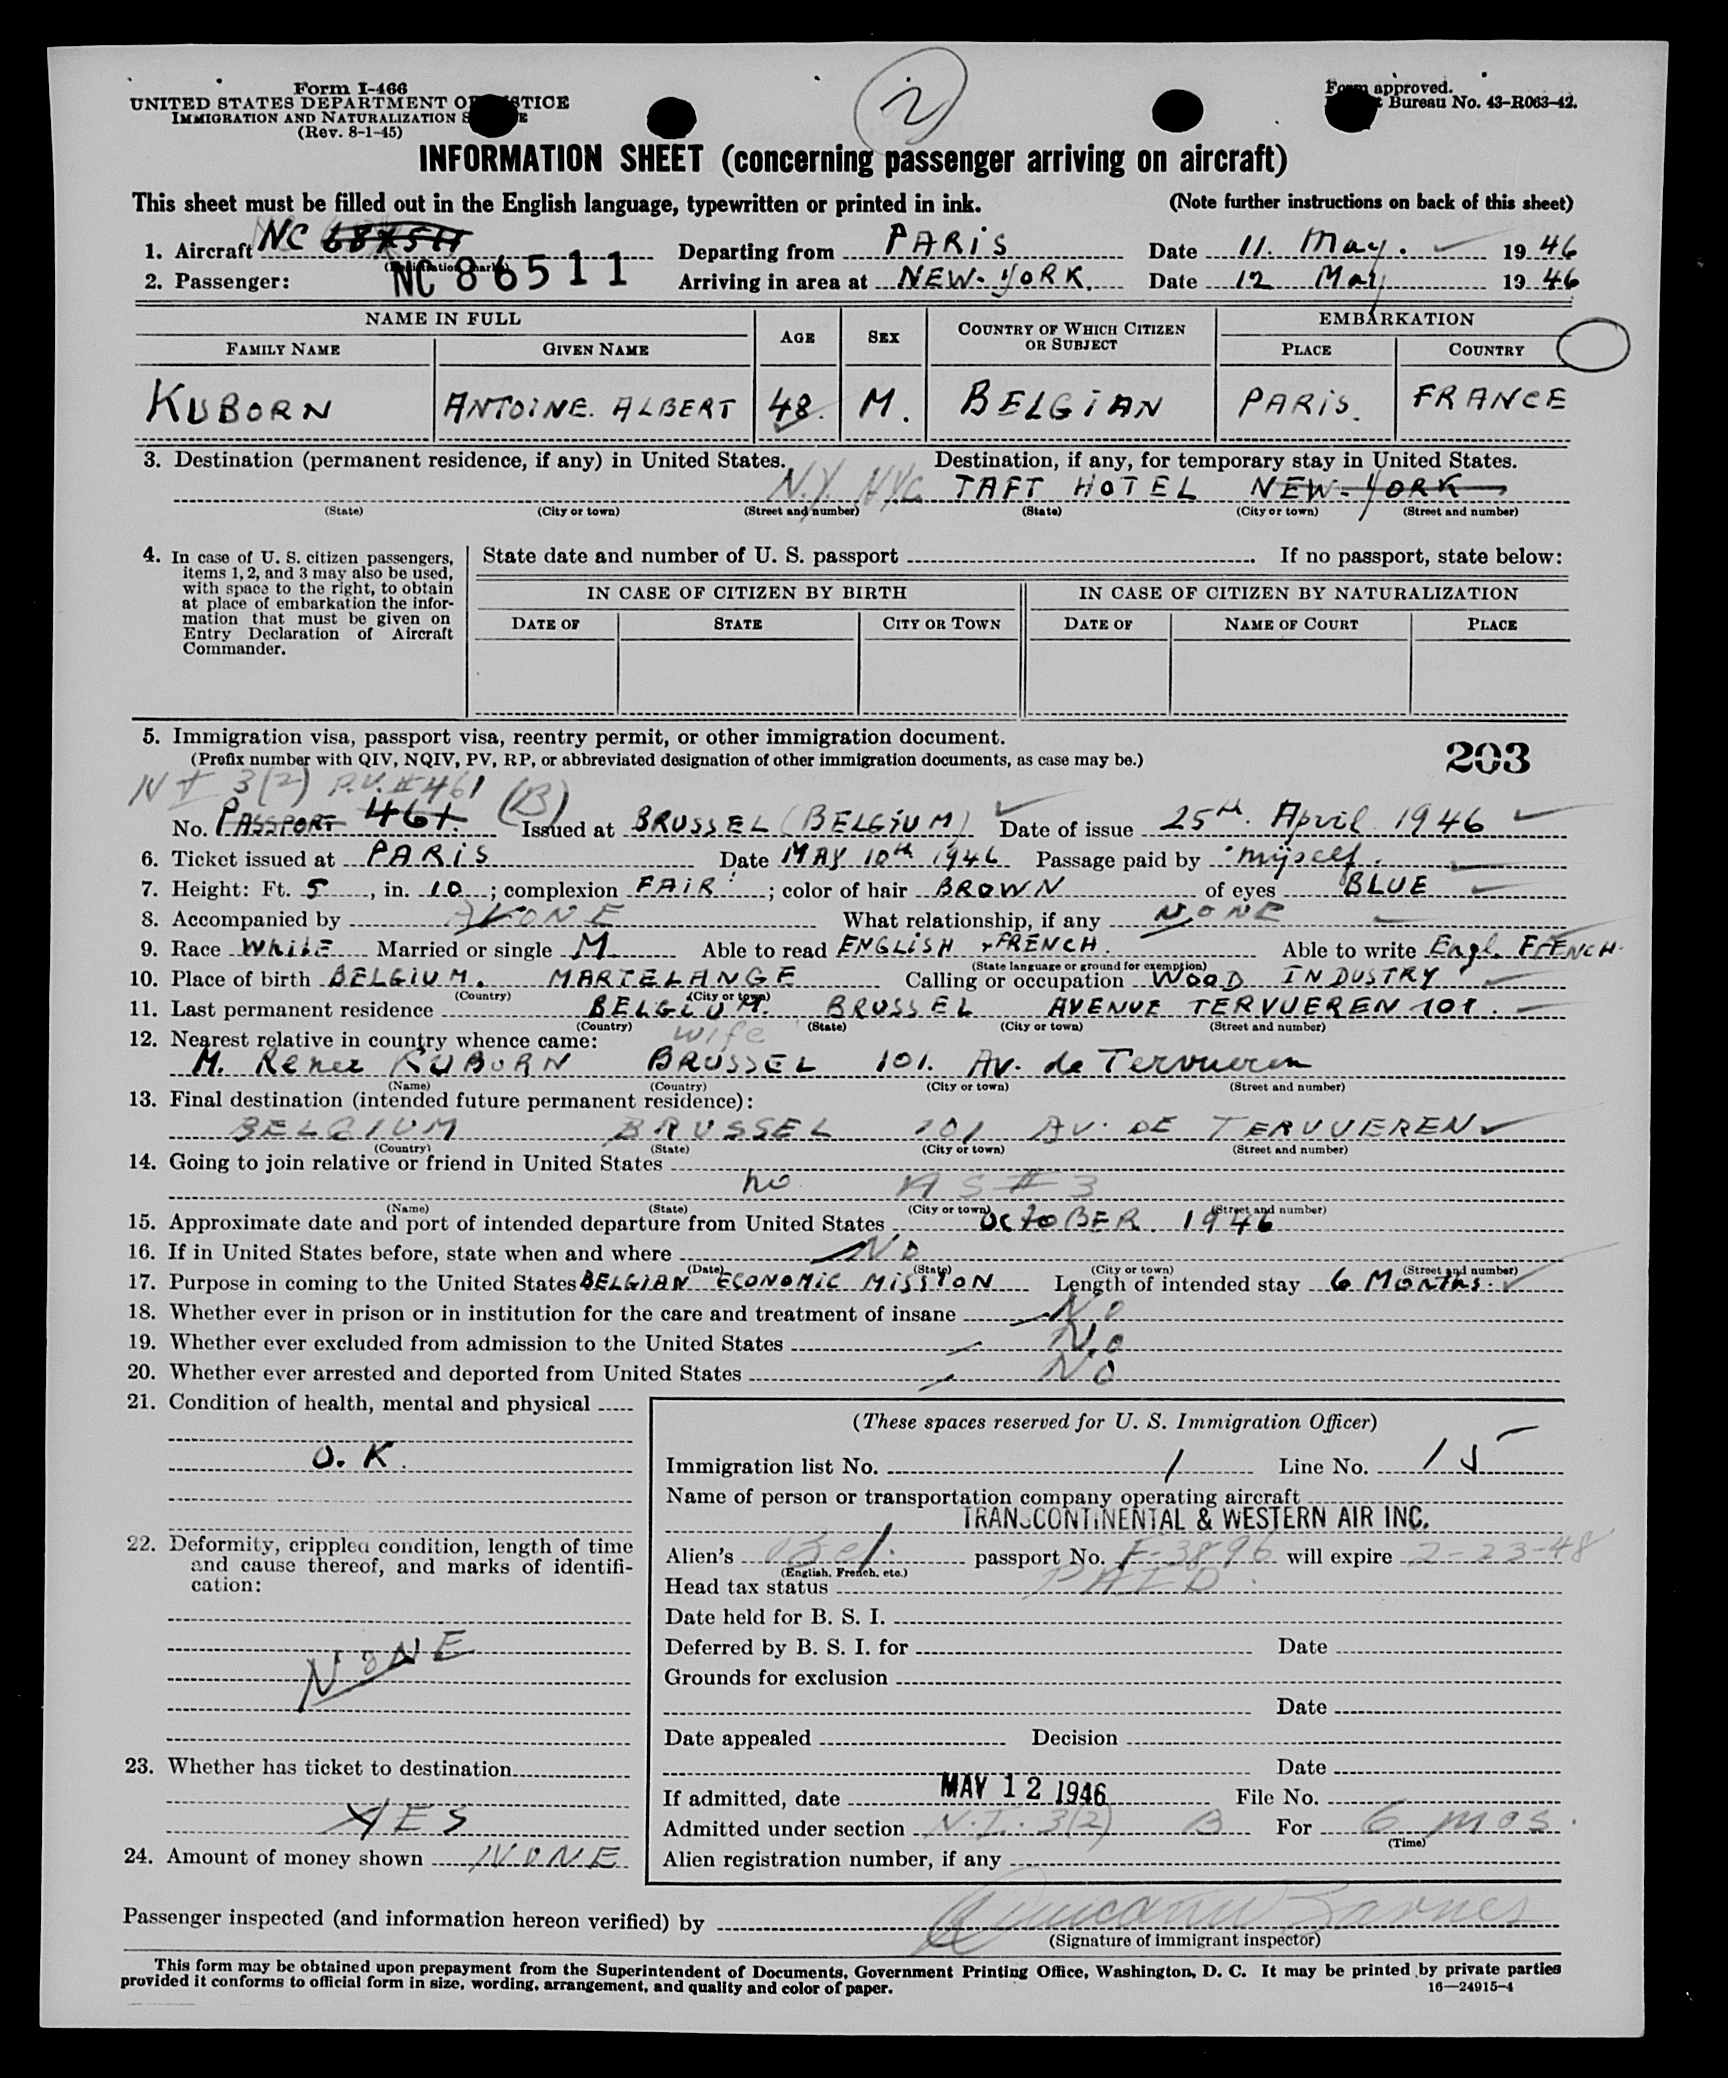 Form I-466
UNITED STATES DEPARTMENT OF JUSTICE
IMMIGRATION AND NATURALIZATION SERVICE
(Rev. 8-1-45)
2
Form approved.
Bureau No. 43-R063-42.
INFORMATION SHEET (concerning passenger arriving on aircraft)
This sheet must be filled out in the English language, typewritten or printed in ink. (Note further instructions on back of this sheet)
1. Aircraft NC Departing from PARIS Date 11. May. 1946
(Registration marks)
2. Passenger: NC 86511 Arriving in area at NEW-YORK. Date 12 May 1946
NAME IN FULL AGE SEX COUNTRY OF WHICH CITIZEN OR SUBJECT EMBARKATION
FAMILY NAME GIVEN NAME PLACE COUNTRY
KUBORN ANTOINE. ALBERT 48. M. BELGIAN PARIS. FRANCE
3. Destination (permanent residence, if any) in United States. Destination, if any, for temporary stay in United States.
N.Y. N.Y.C. TAFT HOTEL NEW-YORK
(State) (City or town) (Street and number) (State) (City or town) (Street and number)
4. In case of U. S. citizen passengers, items 1, 2, and 3 may also be used, with space to the right, to obtain at place of embarkation the information that must be given on Entry Declaration of Aircraft Commander.
State date and number of U. S. passport If no passport, state below:
IN CASE OF CITIZEN BY BIRTH IN CASE OF CITIZEN BY NATURALIZATION
DATE OF STATE CITY OR TOWN DATE OF NAME OF COURT PLACE
5. Immigration visa, passport visa, reentry permit, or other immigration document.
(Prefix number with QIV, NQIV, PV, RP, or abbreviated designation of other immigration documents, as case may be.)
203
NI 3(2) P.V. # 461 (B)
No. PASSPORT 461. Issued at BRUSSEL (BELGIUM) Date of issue 25th. April 1946
6. Ticket issued at PARIS Date MAY 10th 1946 Passage paid by myself.
7. Height: Ft. 5, in. 10; complexion FAIR; color of hair BROWN of eyes BLUE
8. Accompanied by ALONE What relationship, if any NONE
9. Race White Married or single M. Able to read ENGLISH + FRENCH. Able to write Engl. FRENCH.
(State language or ground for exemption)
10. Place of birth BELGIUM. MARTELANGE Calling or occupation WOOD INDUSTRY
(Country) (City or town)
11. Last permanent residence BELGIUM. BRUSSEL AVENUE TERVUEREN 101.
(Country) (State) (City or town) (Street and number)
12. Nearest relative in country whence came: wife
M. Renee KUBORN BRUSSEL 101. Av. de Tervueren
(Name) (Country) (City or town) (Street and number)
13. Final destination (intended future permanent residence):
BELGIUM BRUSSEL 101 AV. DE TERVUEREN
(Country) (State) (City or town) (Street and number)
14. Going to join relative or friend in United States
no AS # 3
(Name) (State) (City or town) (Street and number)
15. Approximate date and port of intended departure from United States OCTOBER. 1946
16. If in United States before, state when and where NO
(Date) (State) (City or town) (Street and number)
17. Purpose in coming to the United States BELGIAN ECONOMIC MISSION Length of intended stay 6 Months.
18. Whether ever in prison or in institution for the care and treatment of insane No
19. Whether ever excluded from admission to the United States No
20. Whether ever arrested and deported from United States No
21. Condition of health, mental and physical
O.K.
22. Deformity, crippled condition, length of time and cause thereof, and marks of identification:
NONE
23. Whether has ticket to destination
YES
24. Amount of money shown NONE
(These spaces reserved for U. S. Immigration Officer)
Immigration list No. 1 Line No. 15
Name of person or transportation company operating aircraft
TRANSCONTINENTAL & WESTERN AIR INC.
Alien's Bel. passport No. F-3896 will expire 2-23-48
(English, French, etc.)
Head tax status PAID
Date held for B. S. I.
Deferred by B. S. I. for Date
Grounds for exclusion
Date
Date appealed Decision
Date
If admitted, date MAY 12 1946 File No.
Admitted under section N.I. 3(2) B For 6 mos.
(Time)
Alien registration number, if any
Passenger inspected (and information hereon verified) by
(Signature of immigrant inspector)
This form may be obtained upon prepayment from the Superintendent of Documents, Government Printing Office, Washington, D. C. It may be printed by private parties
provided it conforms to official form in size, wording, arrangement, and quality and color of paper. 16—24915-4